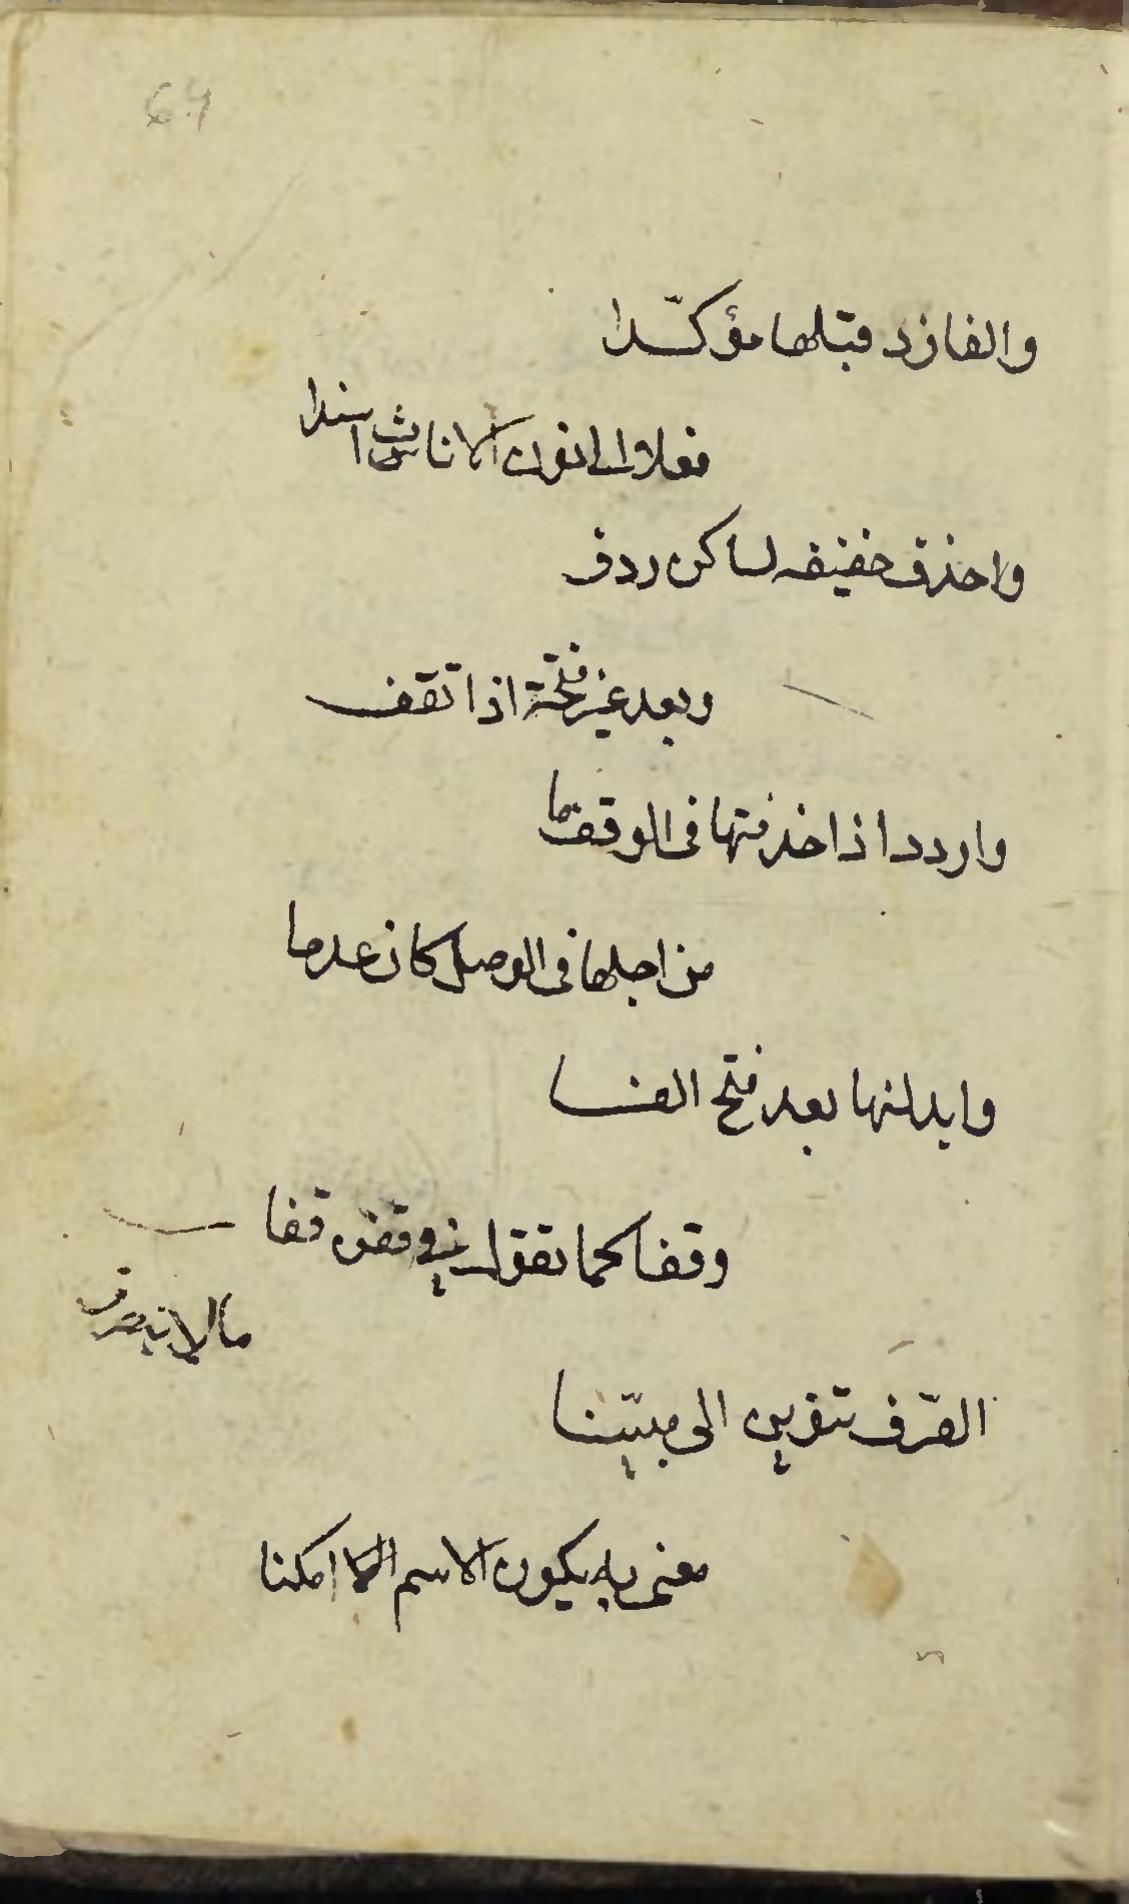 64
والفا زد قبلها مؤكّدا
فعلا الى نون الاناث اسندا
واحذف خفيفه لساكن ردف
وبعد غير فتحة اذا تقف
واردد اذا حذفتها فى الوقف ما
من اجلها فى الوصل كان عدما
وابدلنها بعد فتح الفا
وقفا كما تقول فى قفن قفا
مالا ينصرف
الصّرف تنوين اتى مبيّنا
معنى به يكون الاسم امكنا